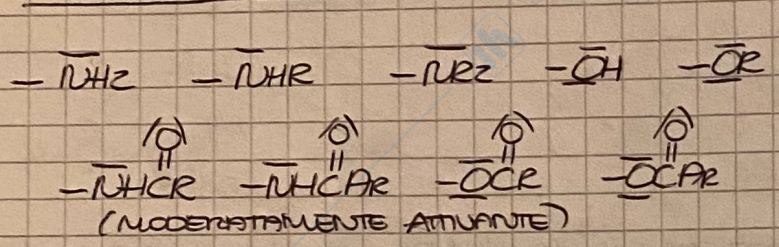 –NH2 –NHR –NR2 –OH –OR
O O O O
–NHCR –NHCAR –OCR –OCAR
(MODERATAMENTE ATTIVANTE)